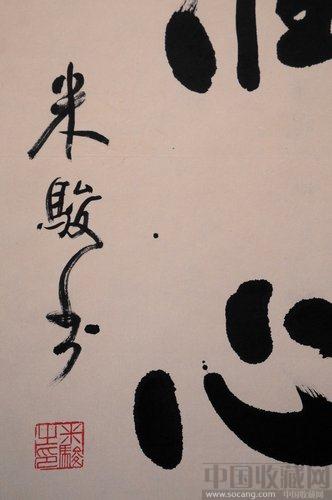 心
米駿书
米駿之印
中国收藏网
www.socang.com 中国收藏网